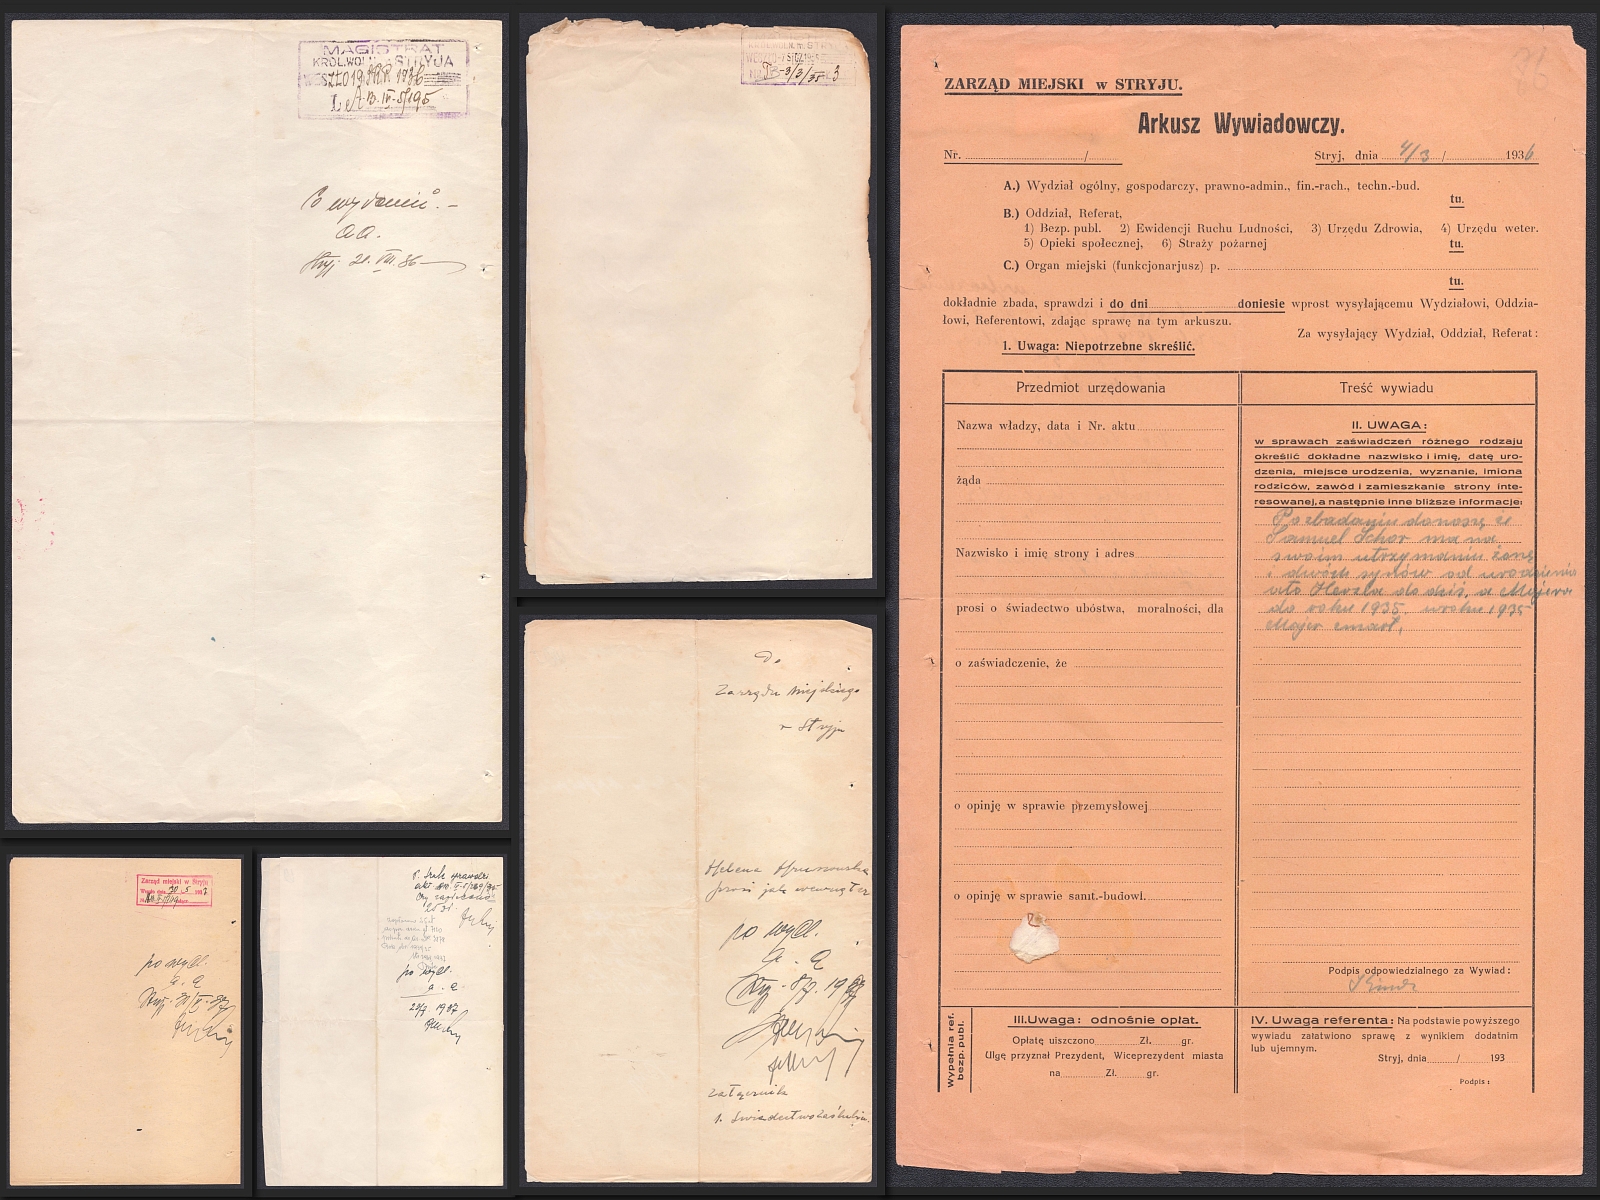 MAGISTRAT
KRÓL. WOLN. M. STRYJA
WESZŁO 19 1936
L. A B. IV-5/195
Po wydaniu.-
aa.
Stryj 21. VIII. 36
B-3/3/35 3
ZARZĄD MIEJSKI w STRYJU.
Arkusz Wywiadowczy.
Nr. /
Stryj, dnia 4/3 / 1936
A.) Wydział ogólny, gospodarczy, prawno-admin., fin.-rach., techn.-bud.
tu.
B.) Oddział, Referat,
1) Bezp. publ. 2) Ewidencji Ruchu Ludności, 3) Urzędu Zdrowia, 4) Urzędu weter.
5) Opieki społecznej, 6) Straży pożarnej tu.
C.) Organ miejski (funkcjonarjusz) p.
tu.
dokładnie zbada, sprawdzi i do dni doniesie wprost wysyłającemu Wydziałowi, Oddzia-
łowi, Referentowi, zdając sprawę na tym arkuszu.
Za wysyłający Wydział, Oddział, Referat:
1. Uwaga: Niepotrzebne skreślić.
Przedmiot urzędowania
Nazwa władzy, data i Nr. aktu
żąda
Nazwisko i imię strony i adres
prosi o świadectwo ubóstwa, moralności, dla
o zaświadczenie, że
o opinję w sprawie przemysłowej
o opinję w sprawie sanit.-budowl.
Treść wywiadu
II. UWAGA:
w sprawach zaświadczeń różnego rodzaju
określić dokładne nazwisko i imię, datę uro-
dzenia, miejsce urodzenia, wyznanie, imiona
rodziców, zawód i zamieszkanie strony inte-
resowanej, a następnie inne bliższe informacje:
Po zbadaniu donoszę że
Samuel Schor ma na
swoim utrzymaniu żonę
i dwóch synów od urodzenia
ato Herzla do dziś, a Majera
do roku 1935 w roku 1935
Majer zmarł.
Podpis odpowiedzialnego za Wywiad:
Wypełnia ref.
bezp. publ.
III. Uwaga: odnośnie opłat.
Opłatę uiszczono Zł. gr.
Ulgę przyznał Prezydent, Wiceprezydent miasta
na Zł. gr.
IV. Uwaga referenta: Na podstawie powyższego
wywiadu załatwiono sprawę z wynikiem dodatnim
lub ujemnym.
Stryj, dnia / 193
Podpis:
Do
Zarządu Miejskiego
w Stryju
Helena
prosi jak wewnątrz
po wyd.
a. a
Stryj
załącznik
1. Świadectwo
Zarząd miejski w Stryju
30 5 1937
po wyd.
a. a
Stryj
po wyd.
a. a.
1937